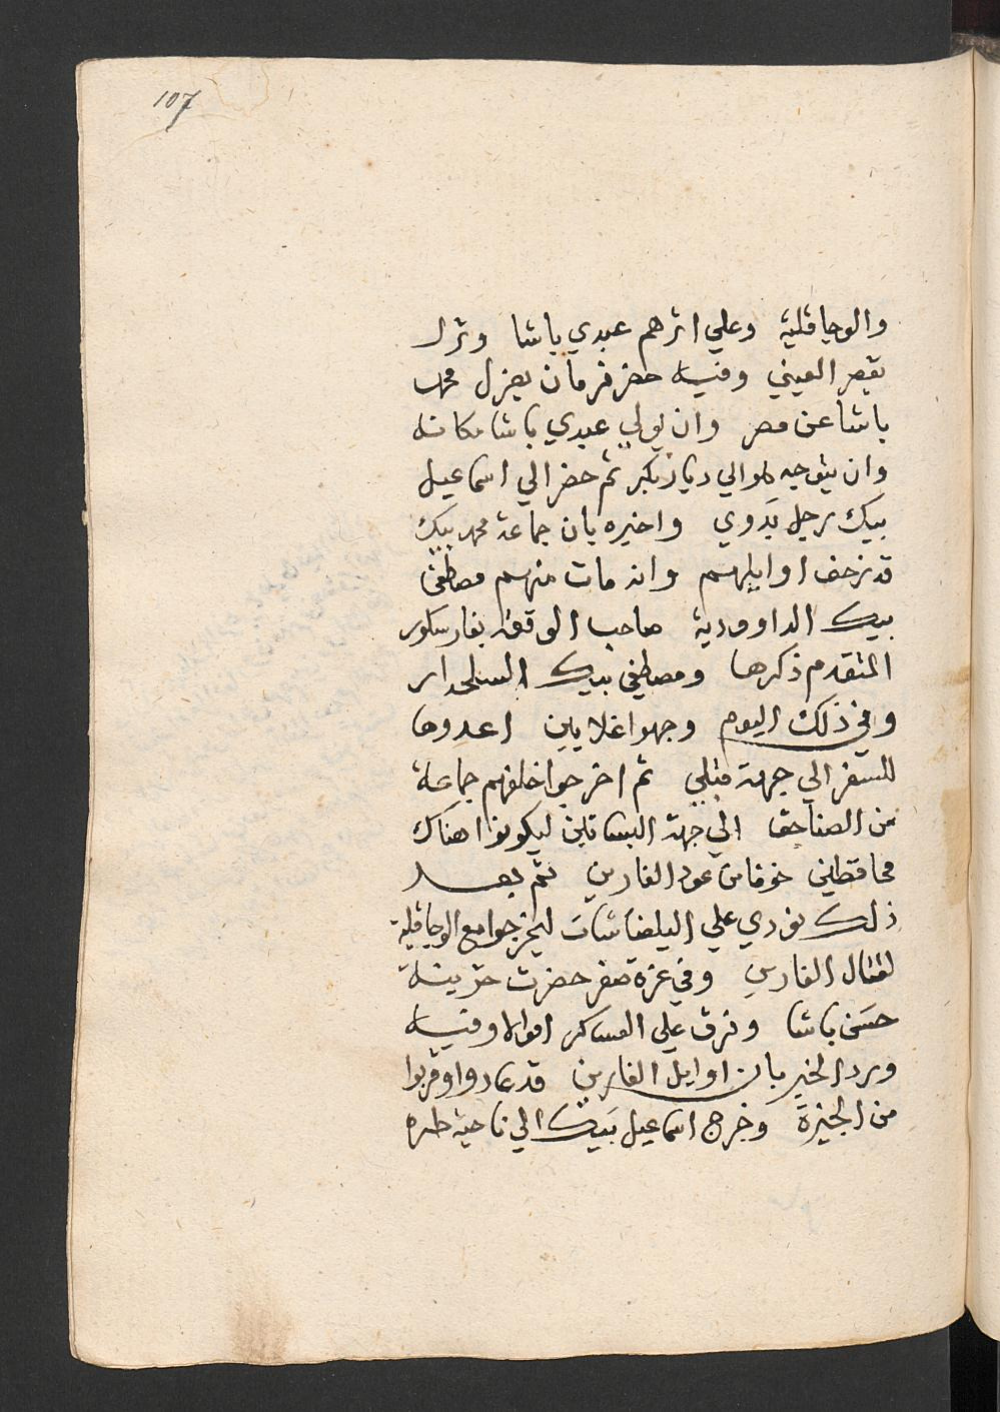 107
والوجاقلية وعلي اثرهم عبدي باشا ونزل
بقصر العيني وفيه حضر فرمان بعزل محمد
باشا عن مصر وان يولي عبدي باشا مكانه
وان يتوجه هو الي ديار بكر ثم حضر الي اسماعيل
بيك رجل بَدَوي واخبره بان جماعة محمد بيك
قد زحف اوايلهم وانه مات منهم مصطفي
بيك الداوودية صاحب الوقعة بفارسكور
المتقدم ذكرها ومصطفي بيك السلحدار
وفي ذلك اليوم وجهوا غلايين اعدوها
للسفر الي جهة قبلي ثم اخرجوا خلفهم جماعة
من الصناجق الي جهة البساتين ليكونوا هناك
محافظين خوفا من عود الفارين ثم بعد
ذلك نودي علي اليلضاشات ليخرجوا مع الوجاقلية
لقتال الفارين وفي غرة صفر حضرت خزينة
حسَن باشا وفرق علي العساكر اموالا وفيه
ورد الخبر بان اوايل الفارين قد عادوا وقربوا
من الجيزة وخرج اسماعيل بَيك الي ناحية طره